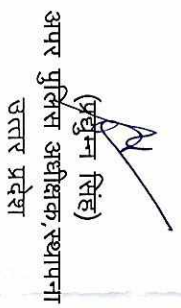 (प्रद्युम्न सिंह)
अपर पुलिस अधीक्षक,स्थापना
उत्तर प्रदेश